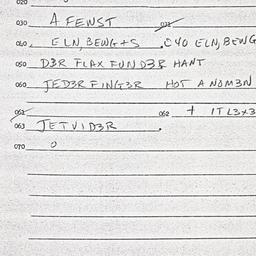 020
030 A FEWST 031
040 ELN, BEWG+S .040 ELN, BEWG
050 D3R FLAX FUND3R HANT
060 JED3R FING3R HOT A NOM3N
061 062 + IT L3X3
063 JETVID3R .
070 O